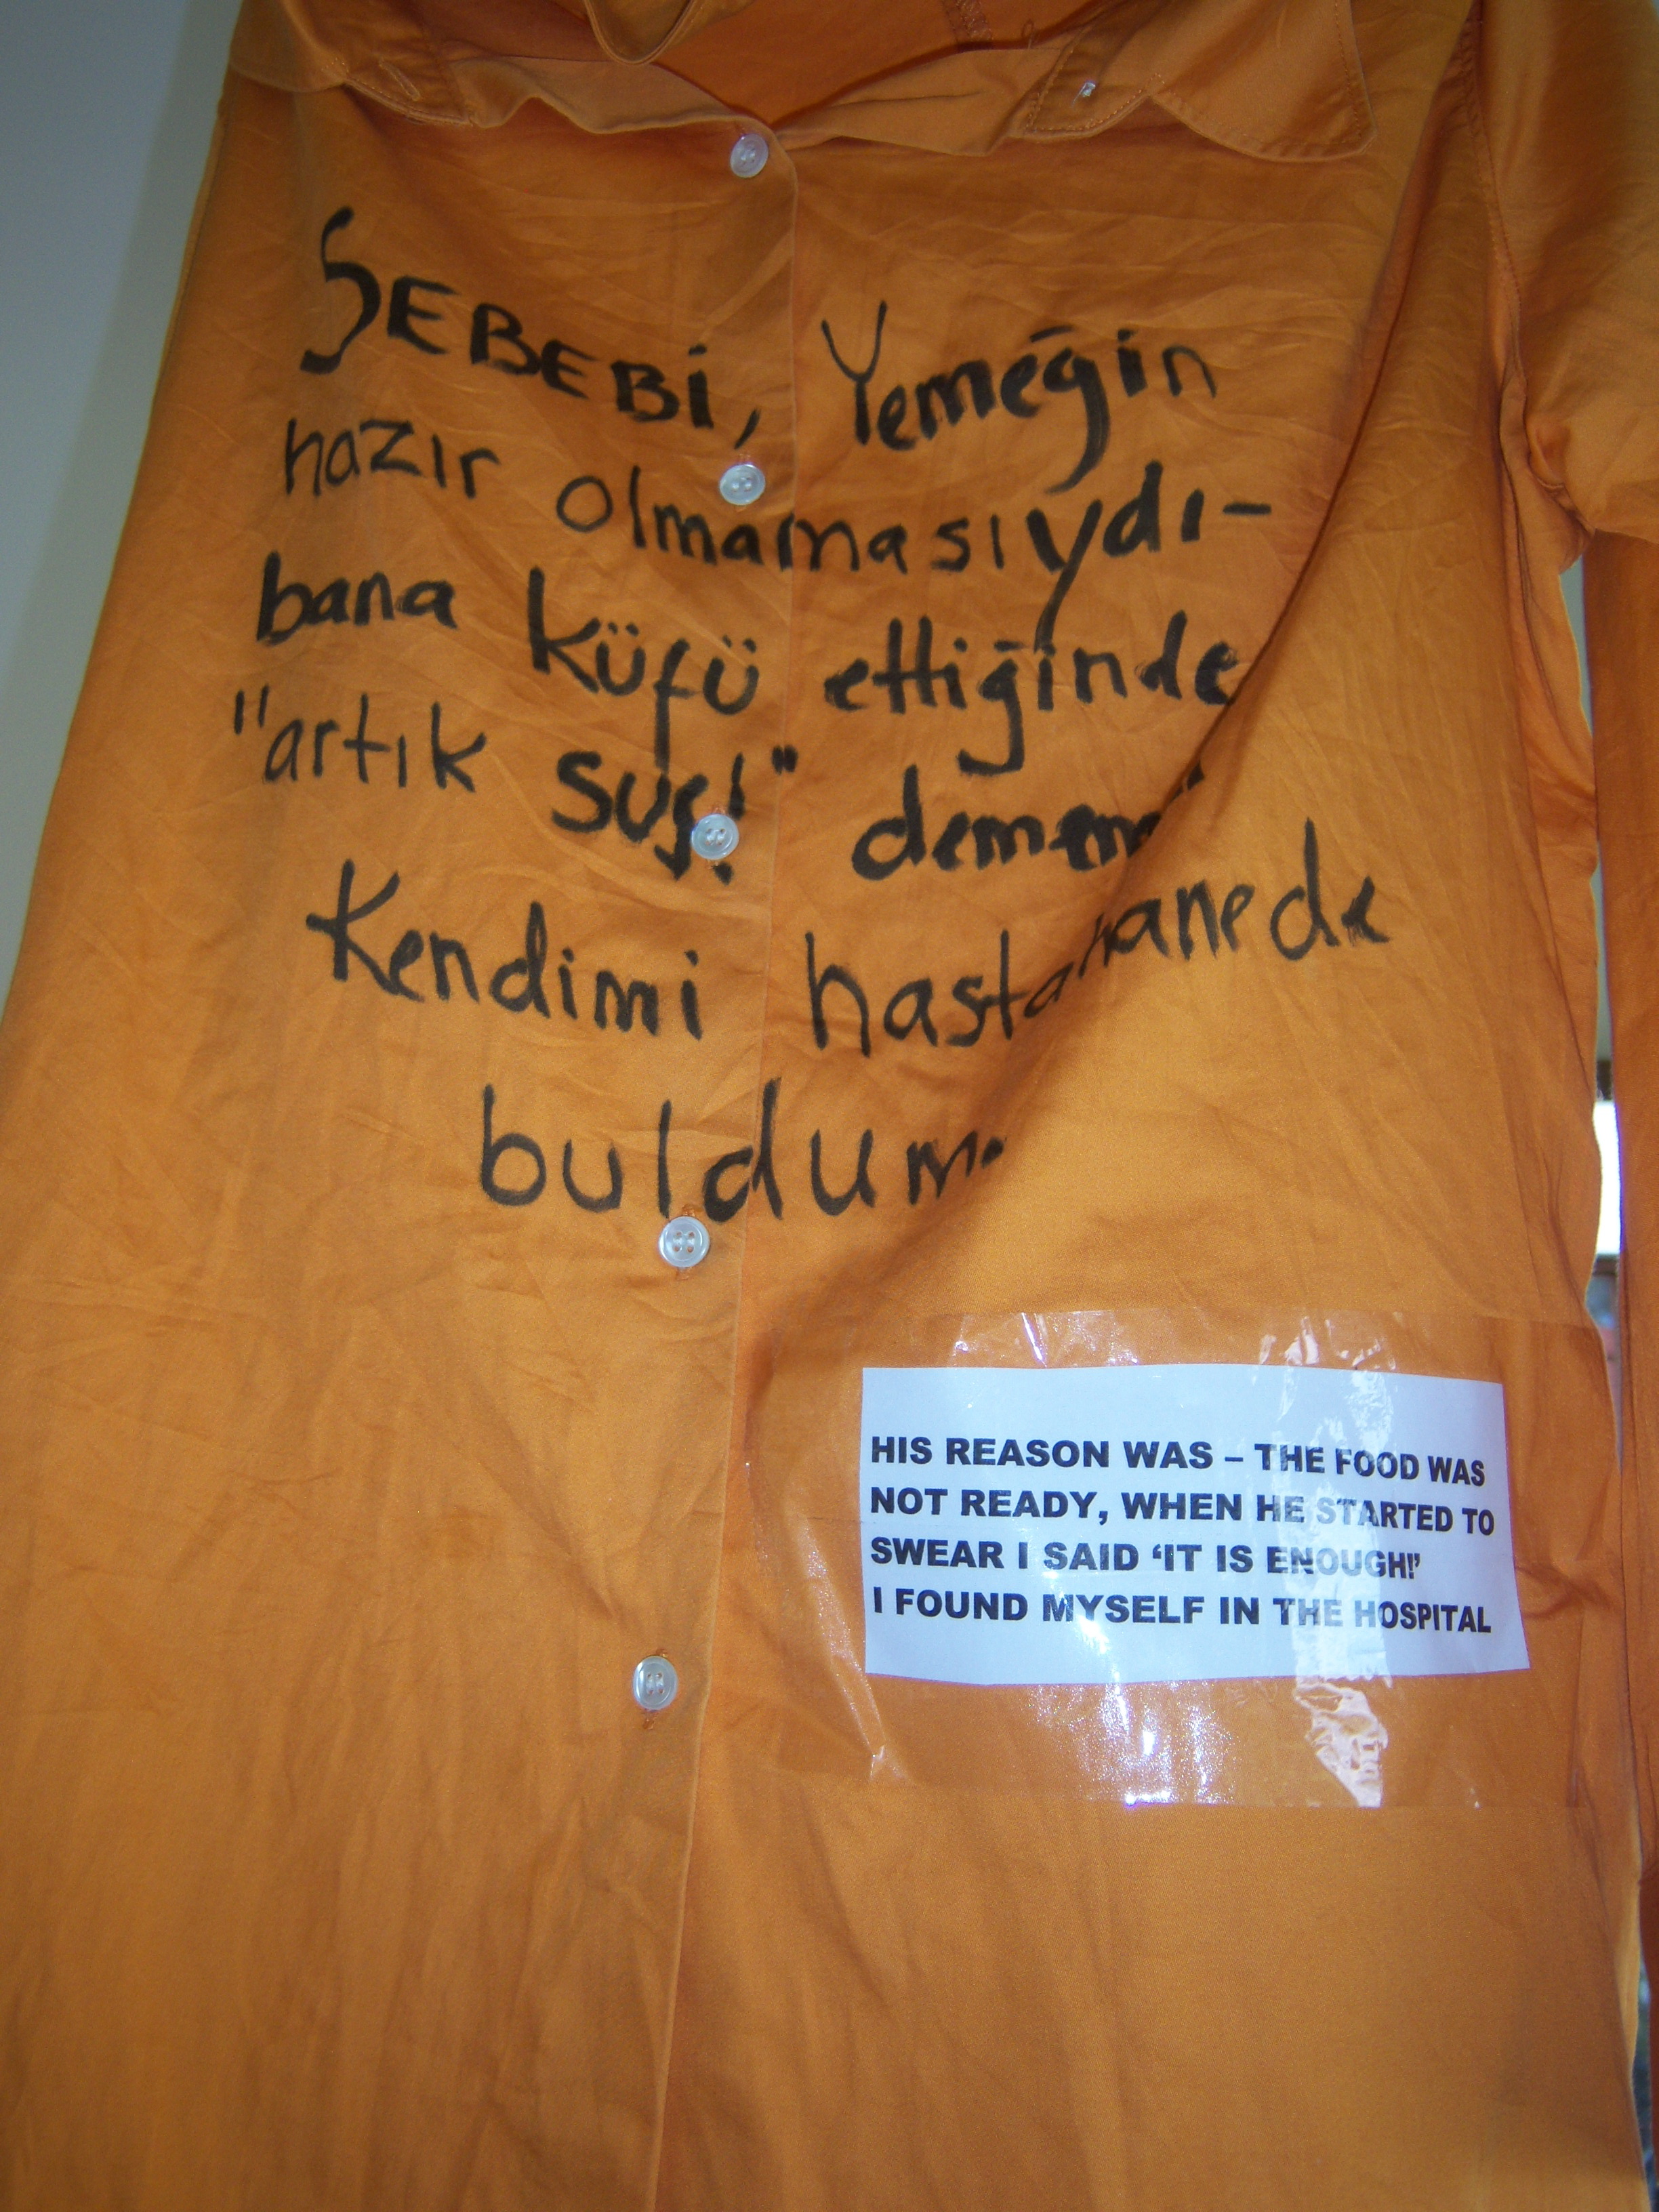 SEBEBİ, Yemeğin
hazır olmamasıydı-
bana küfü ettiğinde
"artık suş!"
Kendimi hastahanede
buldum.
HIS REASON WAS – THE FOOD WAS
NOT READY, WHEN HE STARTED TO
SWEAR I SAID ‘IT IS ENOUGH!’
I FOUND MYSELF IN THE HOSPITAL